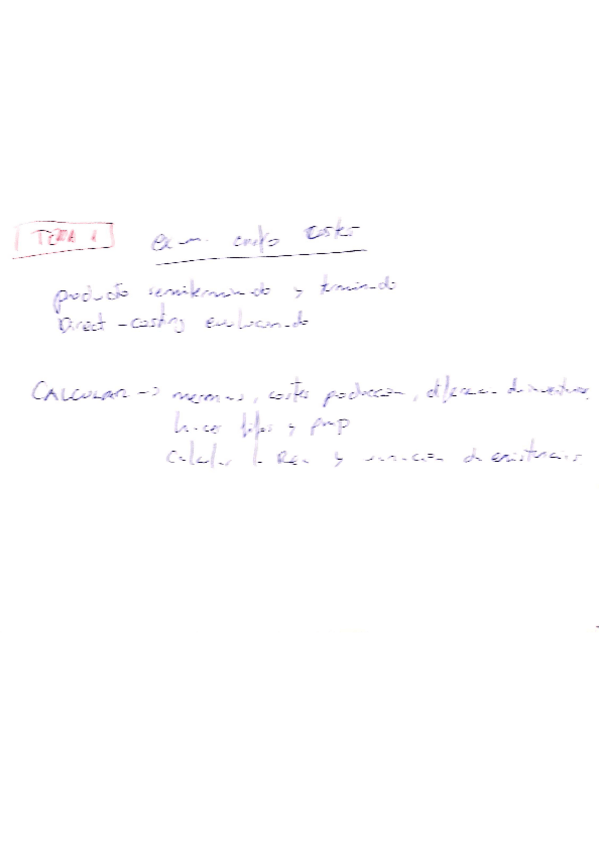 TEMA 1 exam. costes
producto semiterminado y terminado
Direct-costing evolucionado
CALCULAR -> mermas, costes producción, diferencia de inventarios,
hacer fifos y pmp
Calcular la y variación de existencias